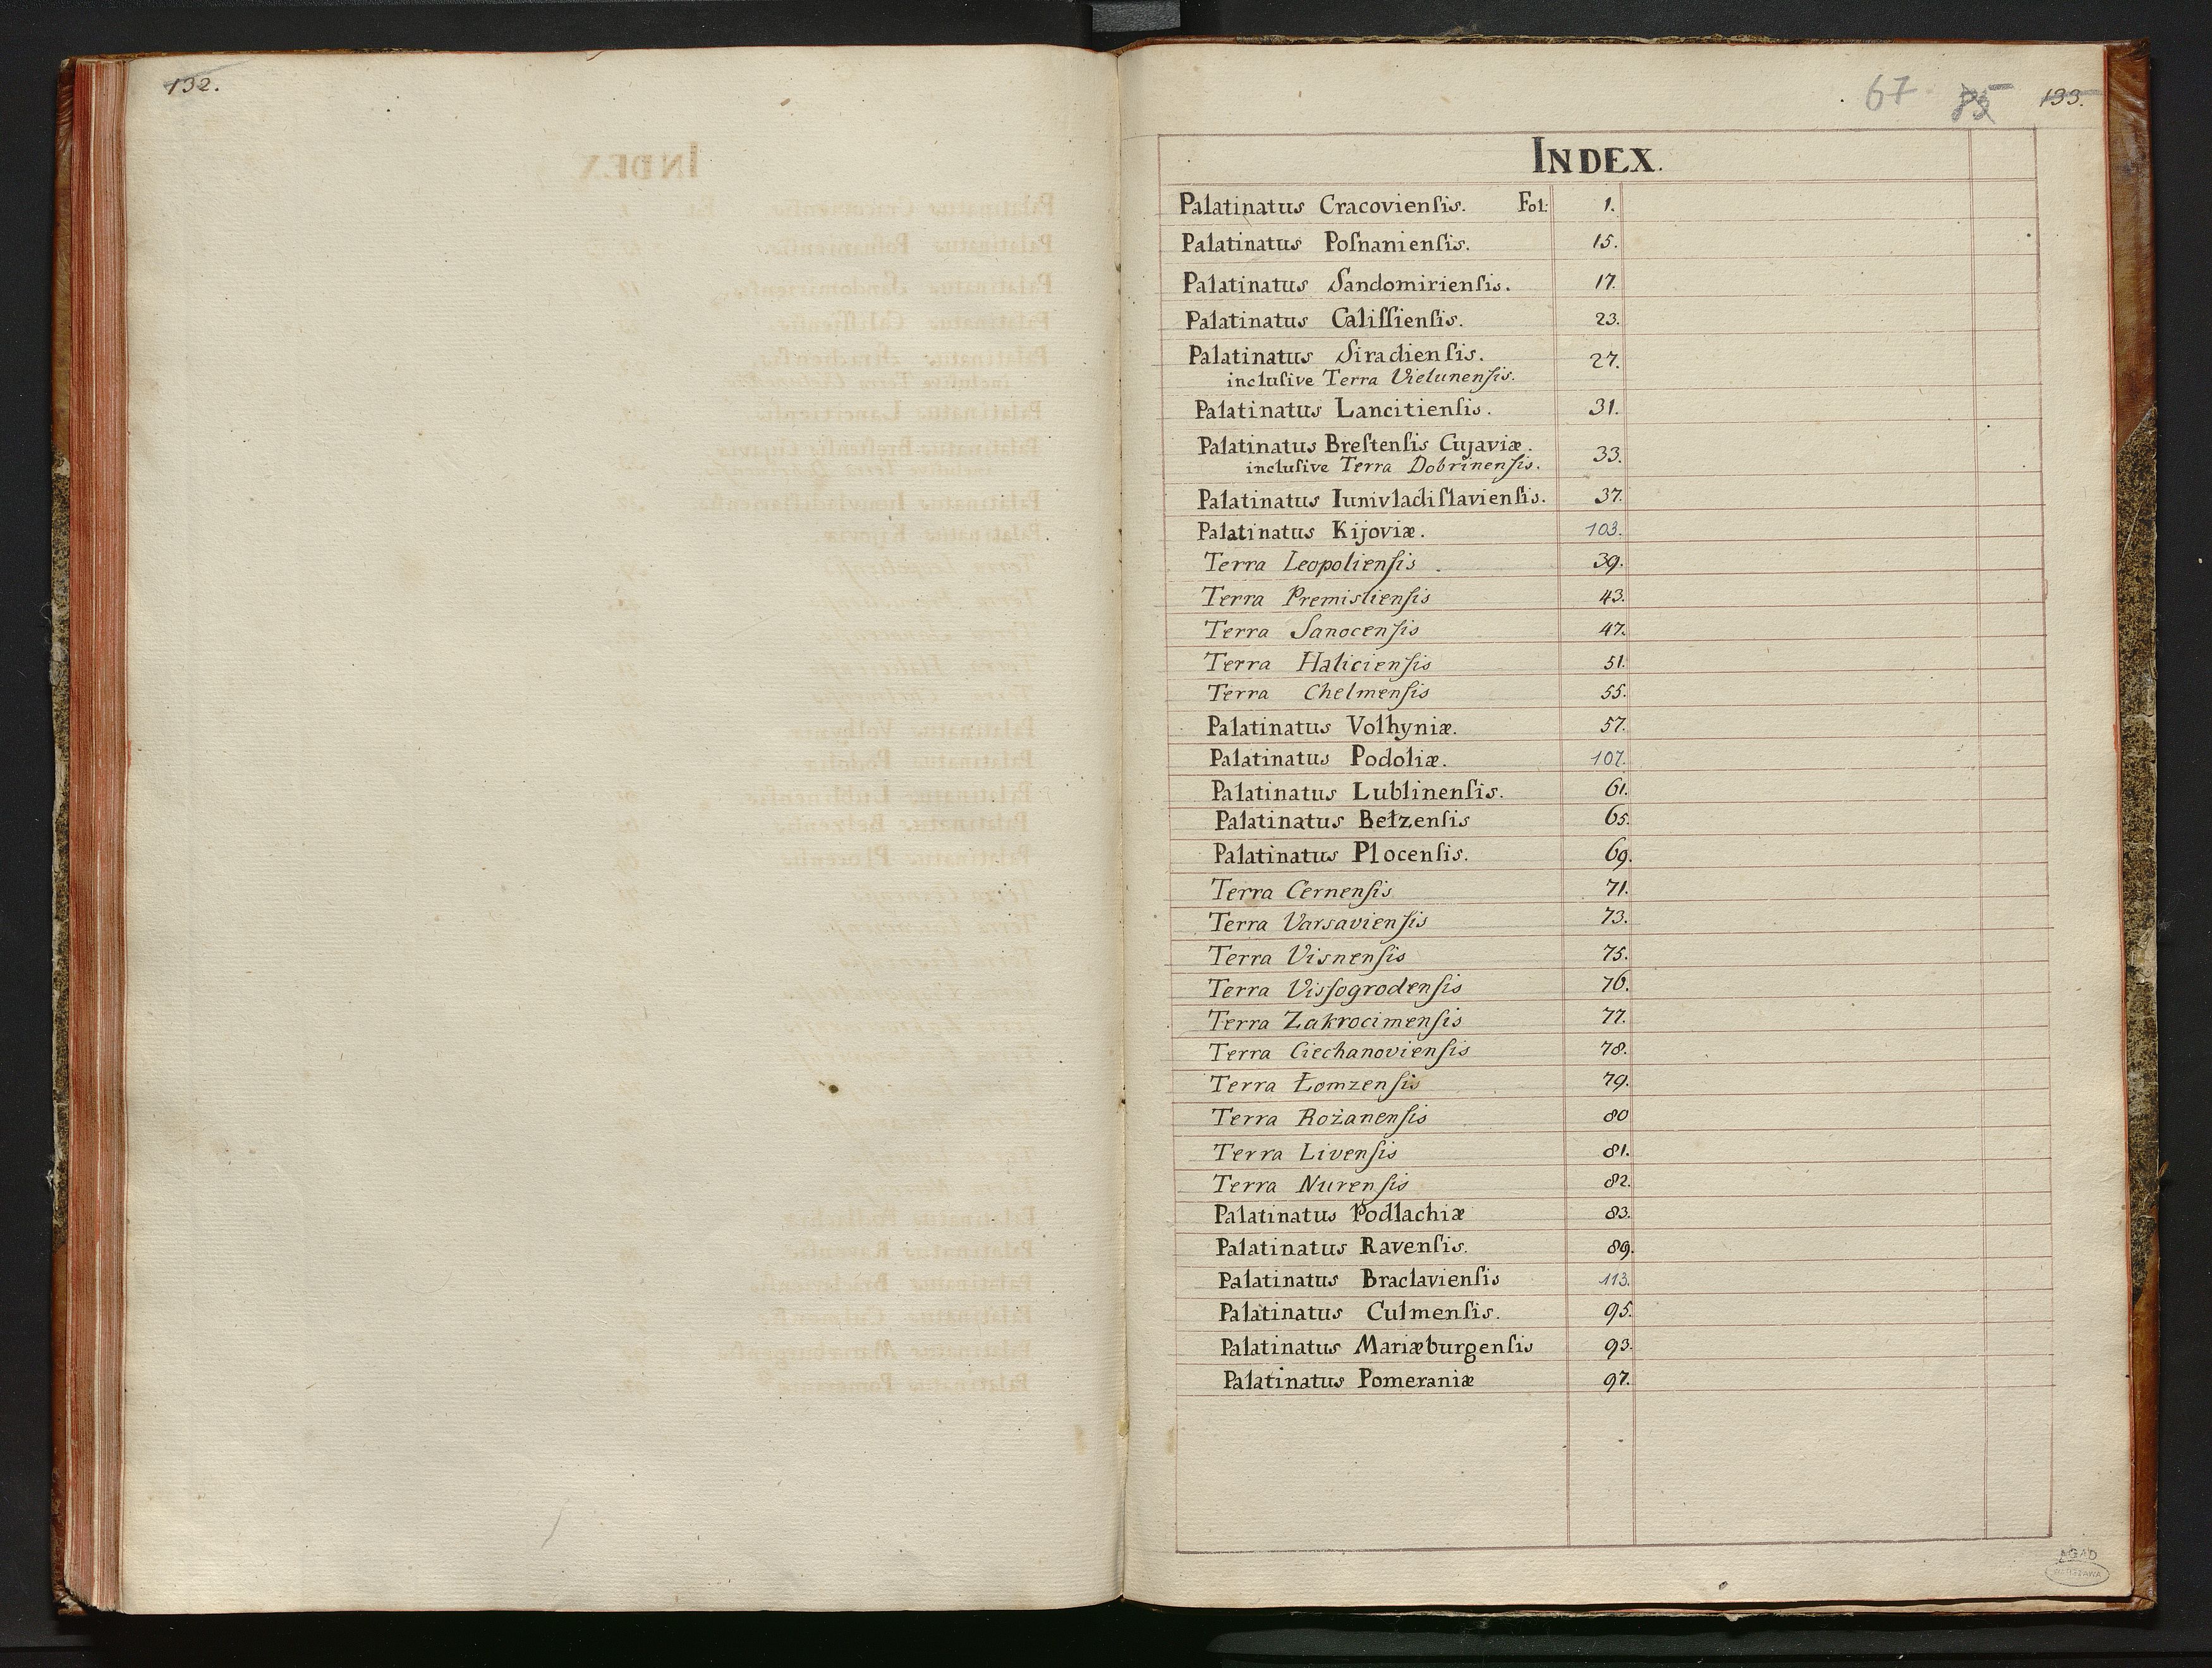 132.
67 85 133.
INDEX.
Palatinatus Cracovienſis. Fol: 1.
Palatinatus Poſnanienſis. 15.
Palatinatus Sandomirienſis. 17.
Palatinatus Caliſſienſis. 23.
Palatinatus Siradienſis. 27.
incluſive Terra Vielunenſis.
Palatinatus Lancitienſis. 31.
Palatinatus Breſtenſis Cujaviæ. 33.
incluſive Terra Dobrinenſis.
Palatinatus Iunivladiſlavienſis. 37.
Palatinatus Kijoviæ. 103.
Terra Leopolienſis. 39.
Terra Premislienſis 43.
Terra Sanocenſis 47.
Terra Halicienſis 51.
Terra Chelmenſis 55.
Palatinatus Volhyniæ. 57.
Palatinatus Podoliæ. 107.
Palatinatus Lublinenſis. 61.
Palatinatus Bełzenſis 65.
Palatinatus Plocenſis. 69.
Terra Cernenſis 71.
Terra Varsavienſis 73.
Terra Visnenſis 75.
Terra Visſogrodenſis 76.
Terra Zakrocimenſis 77.
Terra Ciechanovienſis 78.
Terra Łomzenſis 79.
Terra Rożanenſis 80
Terra Livenſis 81.
Terra Nurenſis 82.
Palatinatus Podlachiæ 83.
Palatinatus Ravenſis. 89.
Palatinatus Braclavienſis 113.
Palatinatus Culmenſis. 95.
Palatinatus Mariæburgenſis 93.
Palatinatus Pomeraniæ 97.
AGAD
WARSZAWA